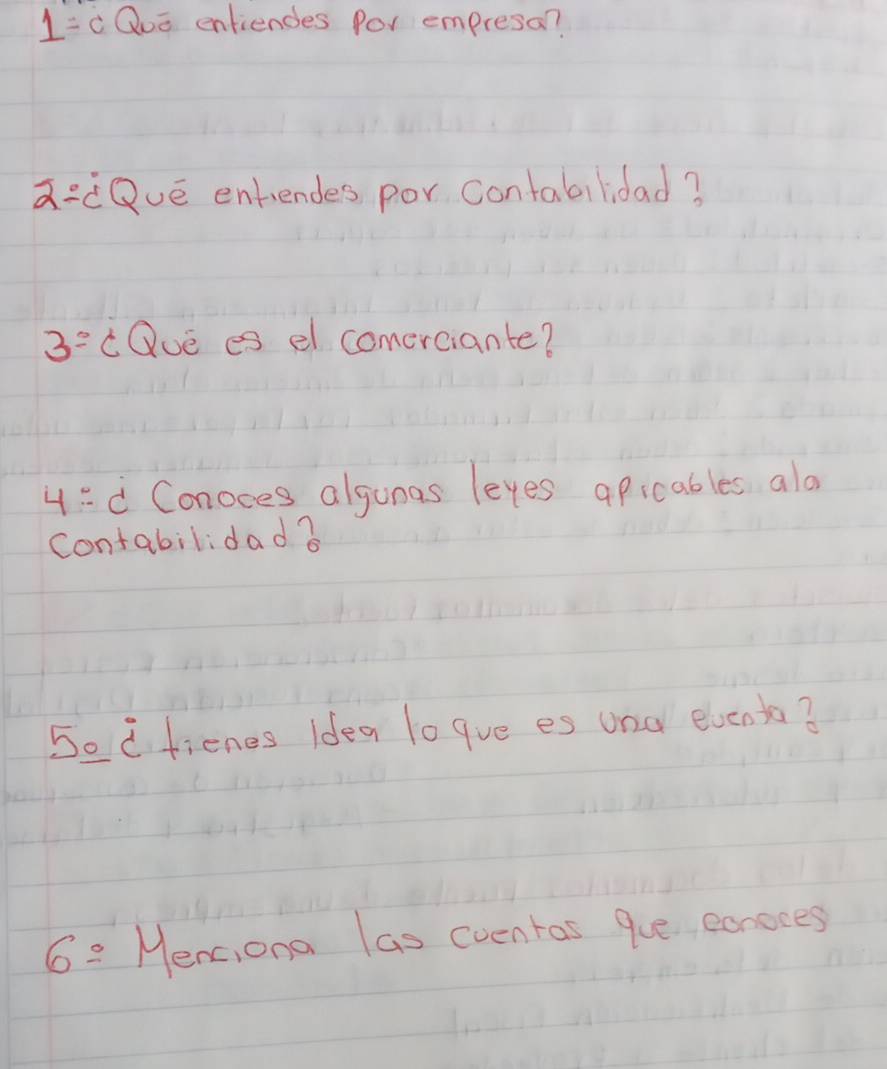 1= ¿Qué entiendes por empresa?
2= ¿Qué entiendes por Contabilidad?
3= ¿Qué es el comerciante?
4= ¿Conoces algunas leyes apicables ala
Contabilidad?
5º ¿tienes Idea lo que es una cuenta?
6º Menciona las cuentas que conoces